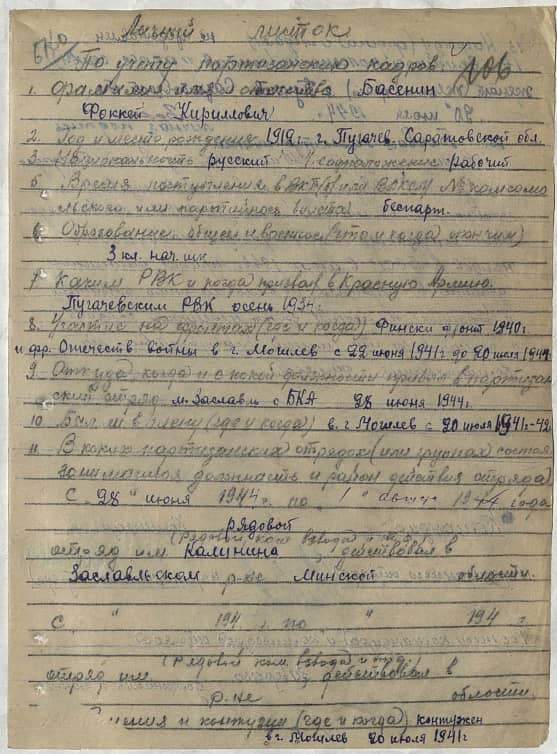 Личный листок
По учету партизанских кадров 106
1. Фамилия имя отчество Басенин
Фоккей Кириллович
2. Год и место рождения 1919 г. г. Пугачев, Саратовской обл.
3. Национальность русский 4. соцположение рабочий
5. Время поступления в ВКП(б) или ВЛКСМ № комсомо
льского или партийного билета беспарт.
6. Образование общее и военное (что и когда окончил)
3 кл. нач. шк.
7. Каким РВК и когда призван в Красную Армию.
Пугачевским РВК осень 1939г.
8. Участие на фронтах (где и когда) Фински фронт 1940г.
и фр. Отечеств войны в г. Могилев с 22 июня 1941г до 20 июля 1941г
9. Откуда, когда и с какой должности прибыл в партизан
ский отряд м. Заславль с БКА 28 июня 1944г.
10. Был ли в плену (где и когда) в г. Могилев с 20 июля 1941г-42
11. В каких партизанских отрядах (или группах) состоял
занимаемая должность и район действия отряда)
С "28" июня 1944 г. по " август 1944 года
рядовой
(Рядовой ком. взвода и
отряд им Калинина, действовал в
Заславльском р-не Минской области.
С " 194 г. по " 194 г.
(Рядовой ком. взвода и отряд.)
отряд им , действовал в
р-не области
и контузии (где и когда) контужен
в г. Могилев 20 июля 1941г